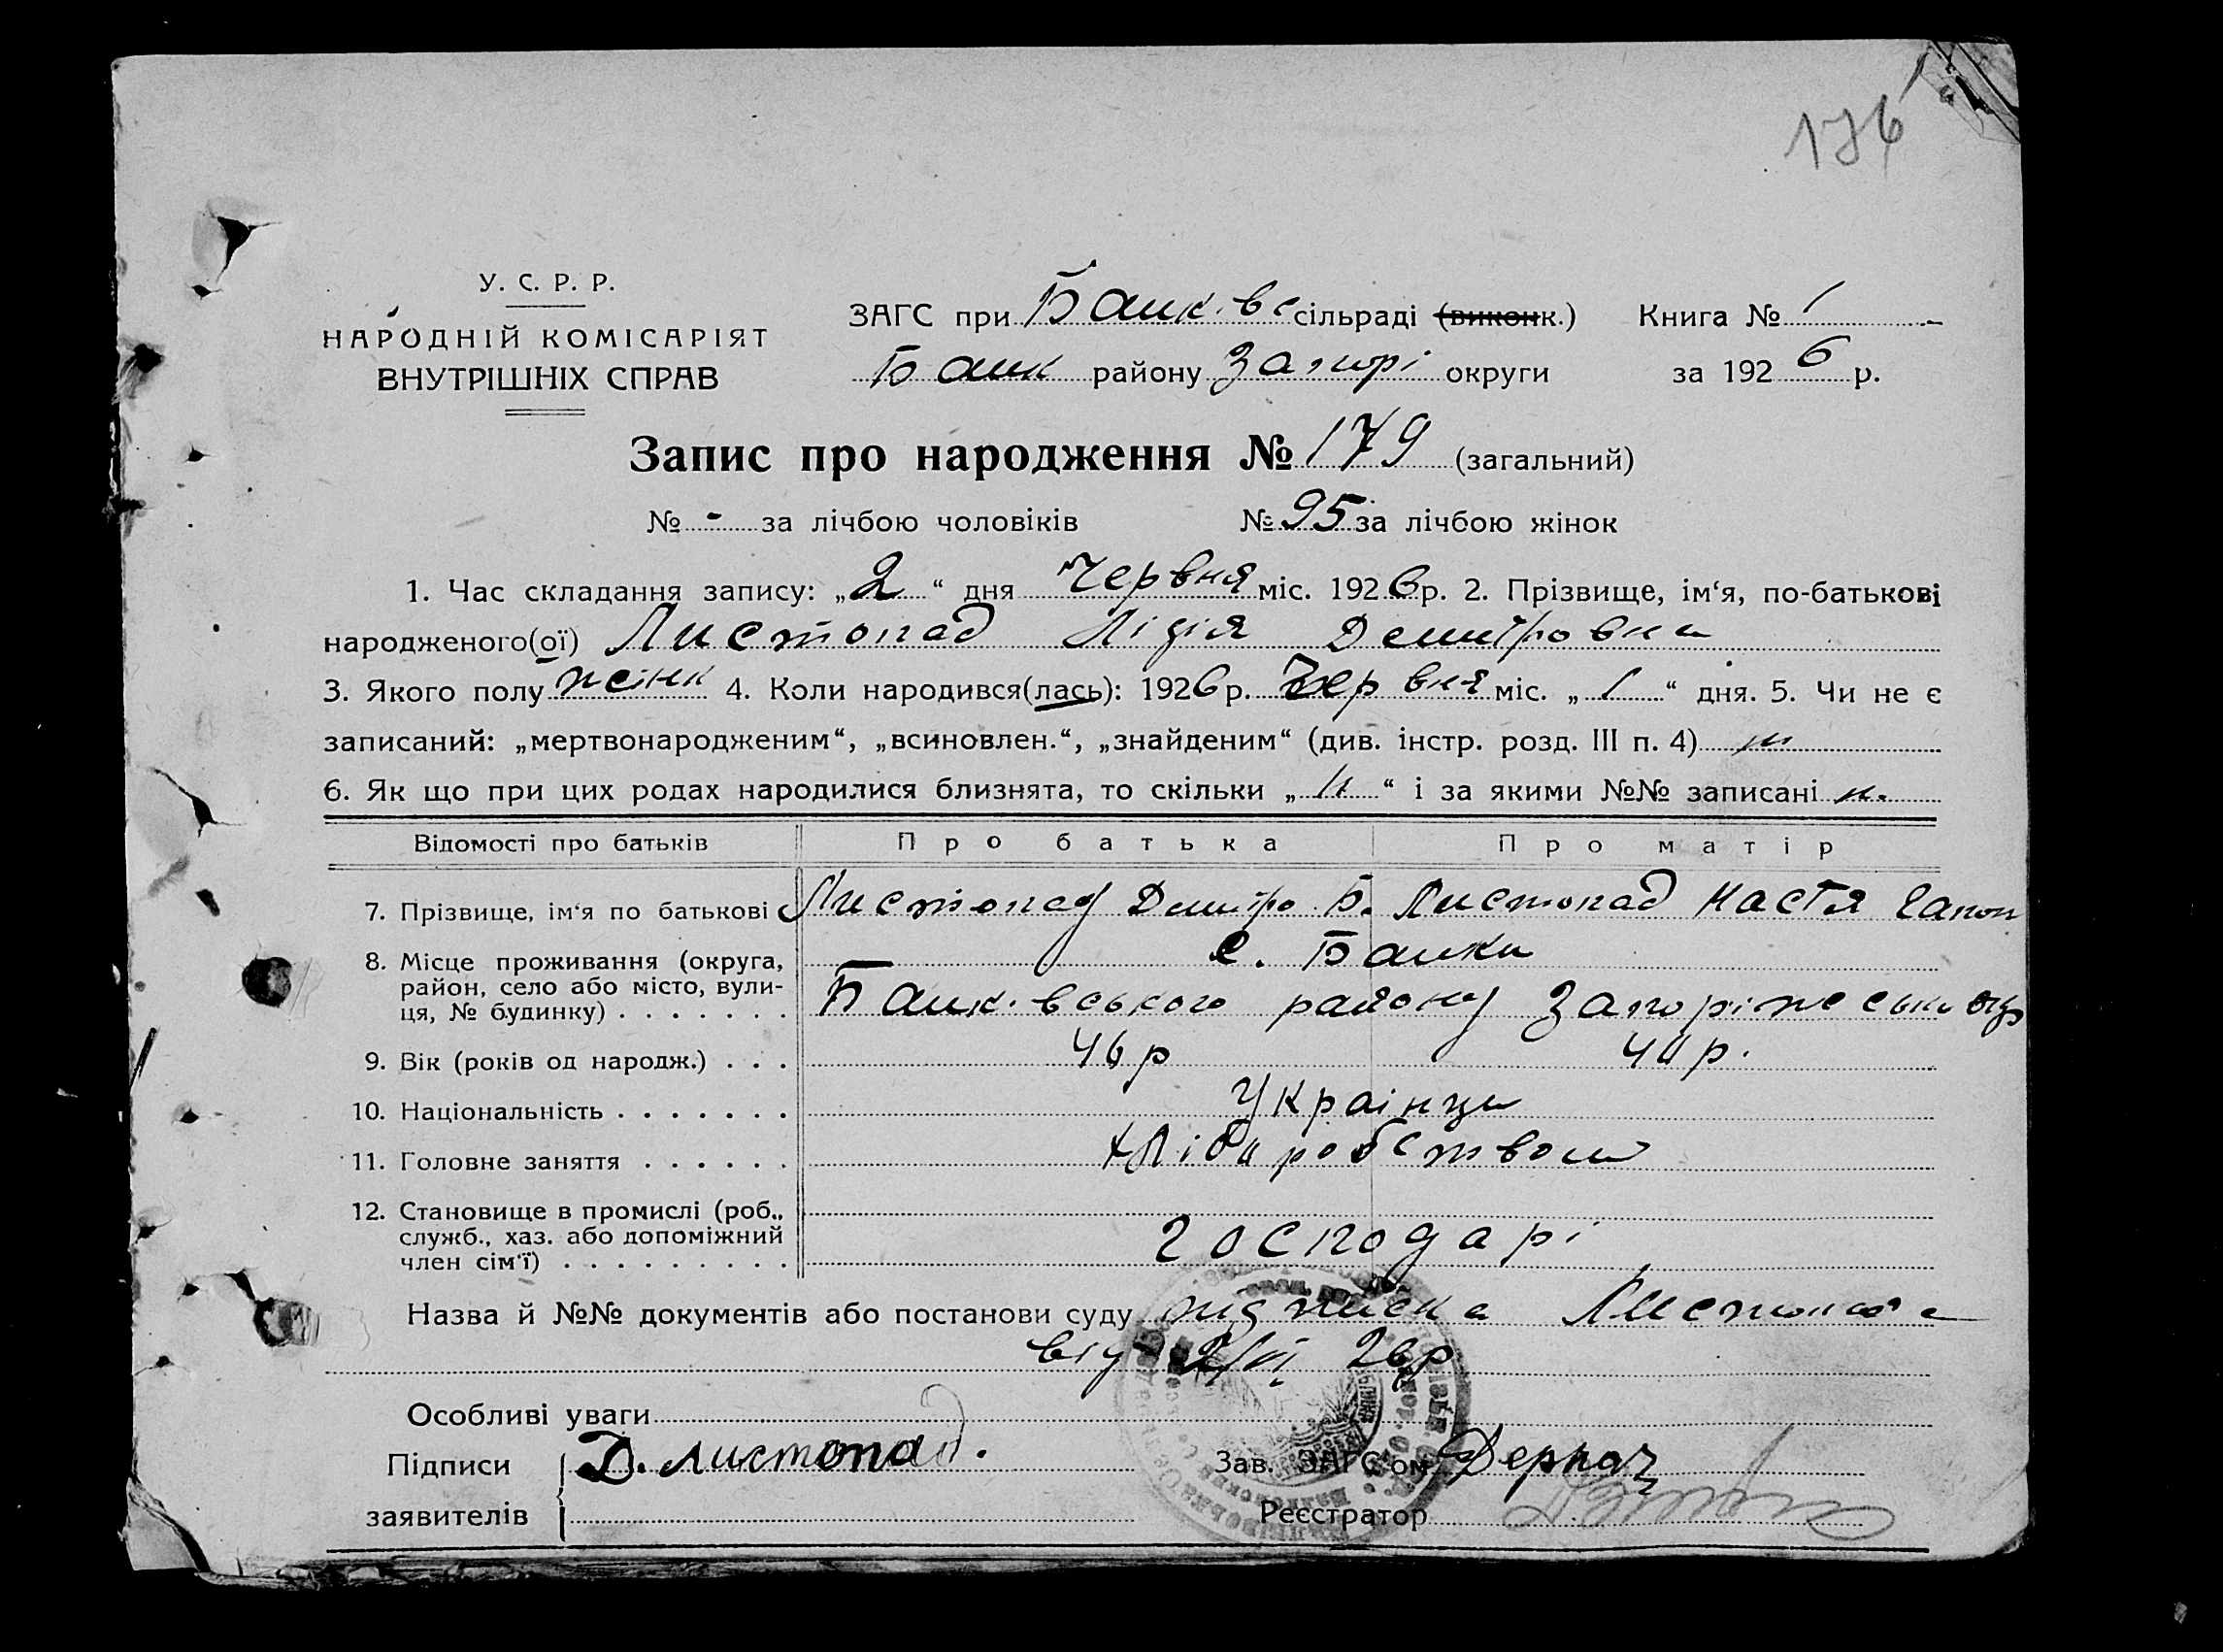 176
У. С. Р. Р.
НАРОДНІЙ КОМІСАРІЯТ
ВНУТРІШНІХ СПРАВ
ЗАГС при сільраді (виконк.) Книга № 1
району округи за 1926 р.
Запис про народження № 179 (загальний)
№ - за лічбою чоловіків № 95 за лічбою жінок
1. Час складання запису: „2“ дня Червня міс. 1926 р. 2. Прізвище, ім‘я, по-батькові
народженого(ої) Листопад Лідія Дмитровна
3. Якого полу жінк 4. Коли народився(лась): 1926 р. Червня міс. „1“ дня. 5. Чи не є
записаний: „мертвонародженим“, „всиновлен.“, „знайденим“ (див. інстр. розд. III п. 4)
6. Як що при цих родах народилися близнята, то скільки „н“ і за якими №№ записані н.
Відомості про батьків Про батька Про матір
7. Прізвище, ім‘я по батькові Листопад Дмитро Б. Листопад Настя Гапон
8. Місце проживання (округа, с. Балки
район, село або місто, вули-
ця, № будинку) . . . . . . . Балківського району Запоріжської окр
9. Вік (років од народж.) . . . 46 р р.
10. Національність . . . . . . . Українци
11. Головне заняття . . . . . . Хліборобством
12. Становище в промислі (роб.,
служб., хаз. або допоміжний
член сім‘ї) . . . . . . . . . господарі
Назва й №№ документів або постанови суду підписка Листопада
від 2/VI 26р
Особливі уваги
Підписи Д. Листопад. Зав. ЗАГС‘ом Деркач
заявителів Реєстратор